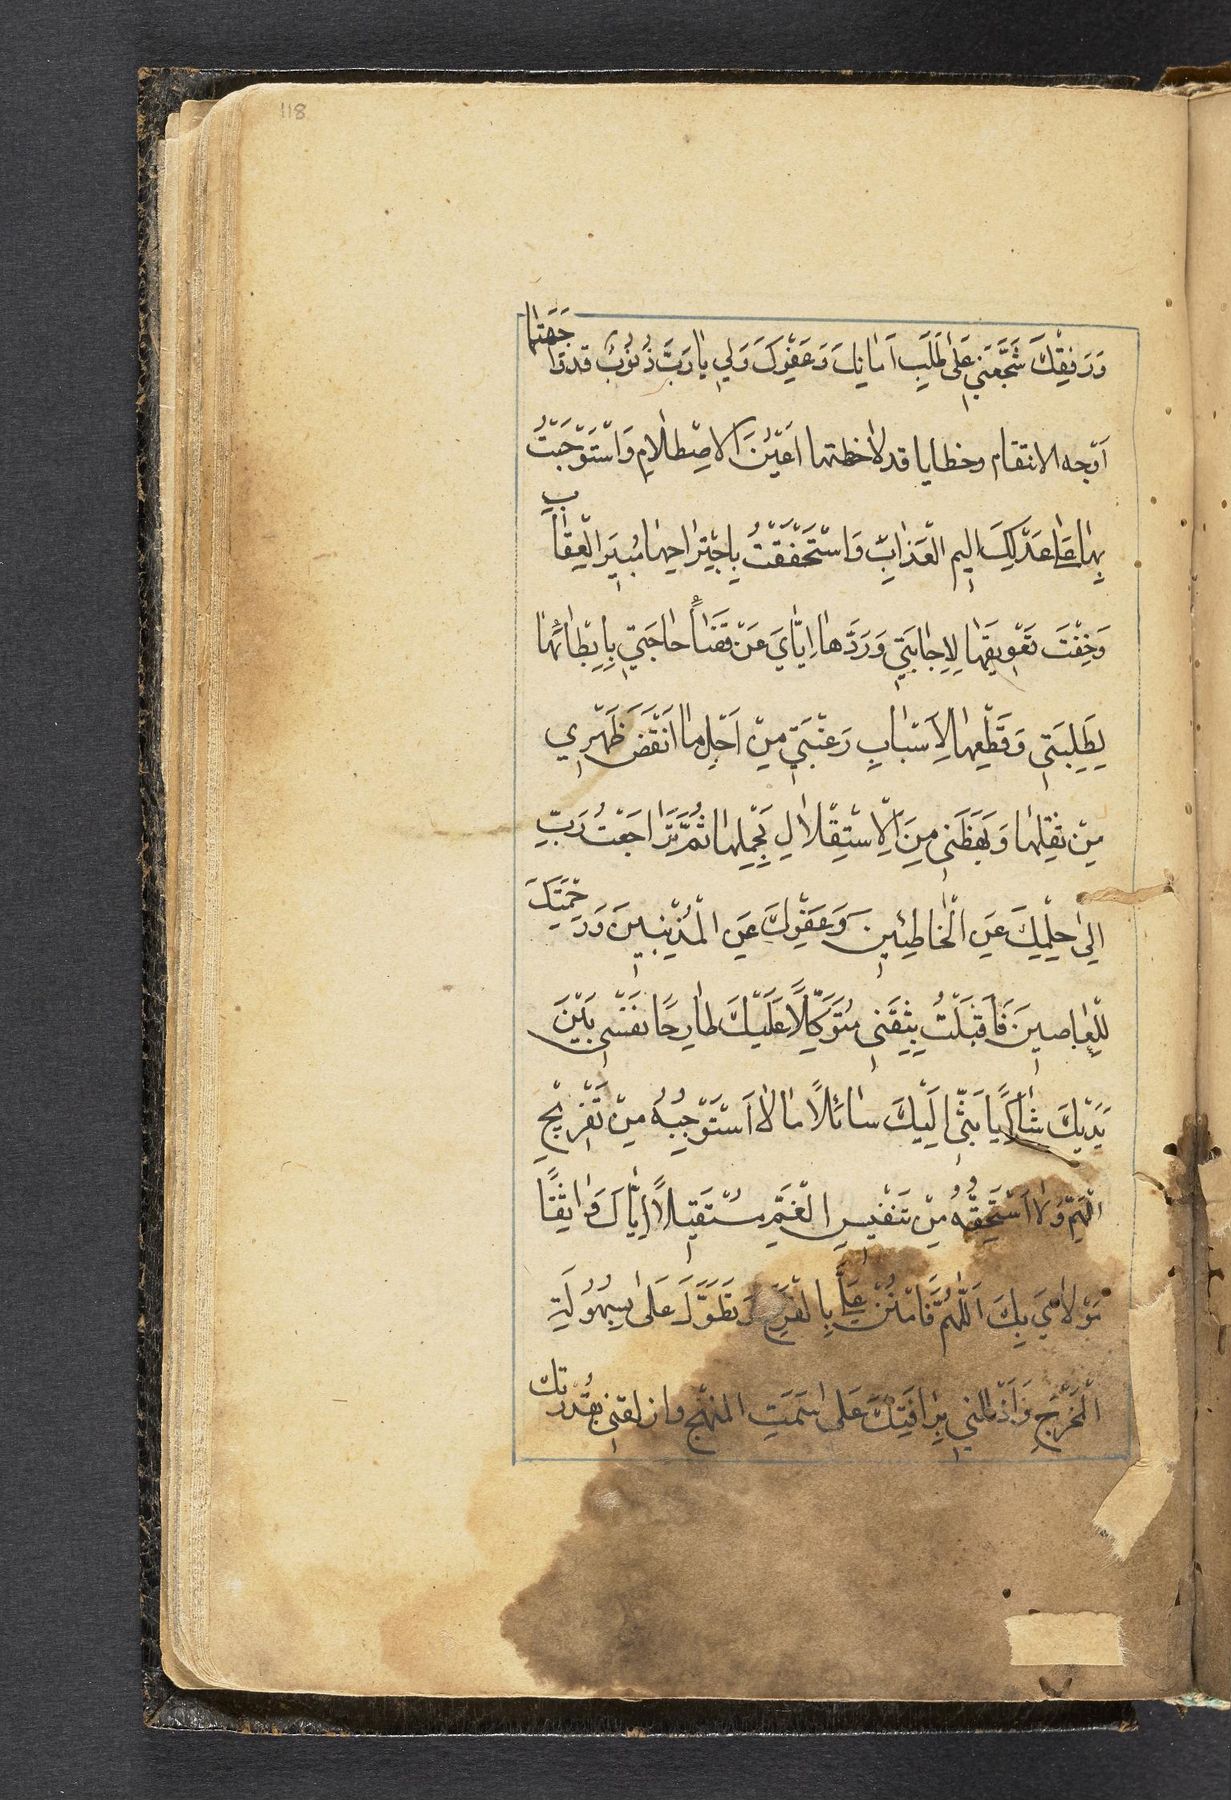 118
وَرَفِيقِكَ شَجَّعَنِي عَلٰى طَلَبِ اَمَانِكَ وَعَفْوِكَ وَلِي يَا رَبِّ ذُنُوبٌ قَدْ وَاجَهَتْهَا
اَوْجه الانتقام وخطايا قد لاحظتها اَعْيُنُ الاصْطِلامِ وَاسْتَوْجَبْتُ
بِهٰا عَلٰى عَدْلِكَ اليم الْعَذٰابِ وَاسْتَحْقَقْتُ بِاجْتِرٰاحِهٰا مُبيرَ الْعِقٰابِ
وَخِفْتَ تَعْوِيقَهٰا لِاِجٰابَتِي وَرَدَّهٰا اِيّٰايَ عَنْ قَضٰاءِ حٰاجَتِي بِاِبْطٰائِهٰا
لِطَلِبَتِي وَقَطْعِهٰا لِاَسْبٰابِ رَغْبَتِي مِنْ اَجْلِ مٰا اَنْقَضَ ظَهْرِي
مِنْ ثِقْلِهٰا وَبَهَظَنِي مِنَ الْاِسْتِقْلٰالِ بِحَمْلِهٰا ثُمَّ تَرٰاجَعْتُ رَبِّ
اِلىٰ حِلْمِكَ عَنِ الْخٰاطِئِينَ وَعَفْوِكَ عَنِ الْمُذْنِبينَ وَرَحْمَتِكَ
لِلْعٰاصينَ فَاَقْبَلْتُ بِثِقَتِي مُتَوَكِّلًا عَلَيْكَ طٰارِحًا نَفْسِي بَيْنَ
يَدَيْكَ شٰاكِيًا بَثِّي اِلَيْكَ سٰائِلًا مٰا لٰا اَسْتَوْجِبُهُ مِنْ تَفْرِيجِ
الْهَمِّ وَلٰا اَسْتَحِقُّهُ مِنْ تَنْفيسِ الْغَمِّ مُسْتَقيلًا اِيّٰاكَ وٰاثِقًا
مَوْلٰايَ بِكَ اَللّٰهُمَّ فَامْنُنْ عَلَيَّ بِالْفَرَجِ وَتَطَوَّلْ عَلٰى سُهُولَةِ
الْمَخْرَجِ وَادْلُلْنِي بِرَاْفَتِكَ عَلٰى سَمْتِ المنهج وازلقني بقُدْرتِك